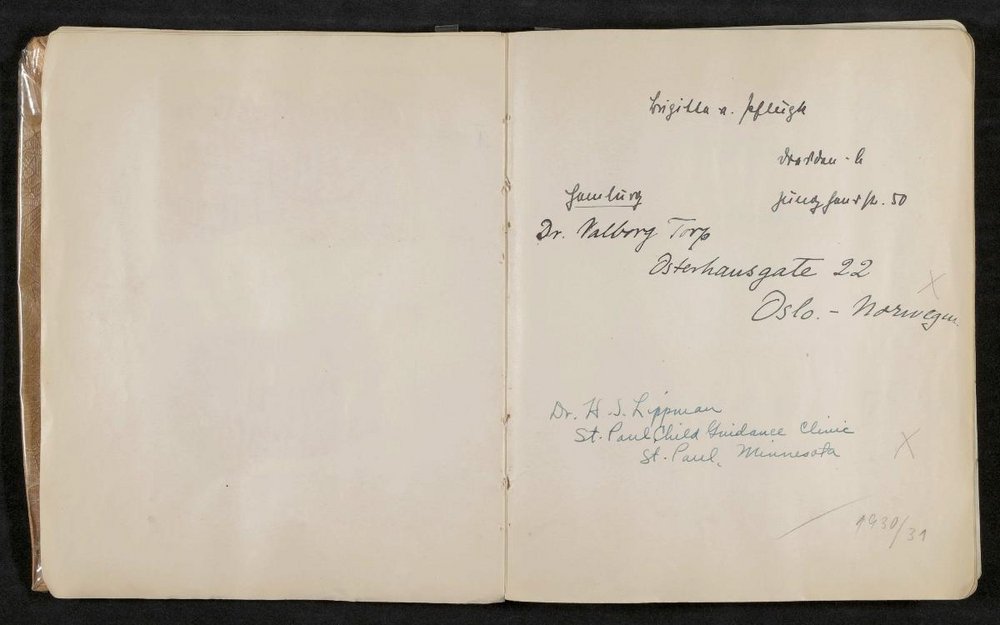 Brigitta v. Pflugk
Dresden - A
Hamburg
Dr. Valborg Torp
Osterhausgate 22
X
Oslo. - Norwegen.
Dr. H. S. Lippman
St. Paul Child Guidance Clinic
X
St. Paul, Minnesota
1930/31